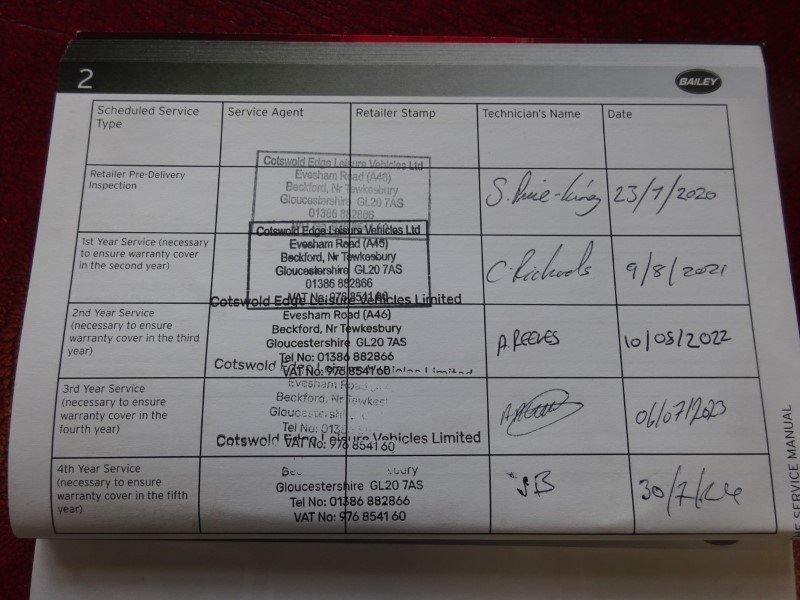 2
BAILEY
Scheduled Service Type
Service Agent
Retailer Stamp
Technician's Name
Date
Retailer Pre-Delivery
Inspection
Cotswold Edge Leisure Vehicles Ltd
Evesham Road (A46)
Beckford, Nr Tewkesbury
Gloucestershire GL20 7AS
01386 882866
23/7/2020
1st Year Service (necessary
to ensure warranty cover
in the second year)
Cotswold Edge Leisure Vehicles Ltd
Evesham Road (A46)
Beckford, Nr Tewkesbury
Gloucestershire GL20 7AS
01386 882866
VAT No: 976 8541 60
C. Richards
9/8/2021
2nd Year Service
(necessary to ensure
warranty cover in the third
year)
Cotswold Edge Leisure Vehicles Limited
Evesham Road (A46)
Beckford, Nr Tewkesbury
Gloucestershire GL20 7AS
Tel No: 01386 882866
VAT No: 976 8541 60
A.REEVES
10/08/2022
3rd Year Service
(necessary to ensure
warranty cover in the
fourth year)
Cotswold Edge Leisure Vehicles Limited
Evesham Road
Beckford, Nr
Tel No:
VAT No: 976 8541 60
06/07/2023
4th Year Service
(necessary to ensure
warranty cover in the fifth
year)
Cotswold Edge Leisure Vehicles Limited
Gloucestershire GL20 7AS
Tel No: 01386 882866
VAT No: 976 8541 60
JB
30/7/24
SERVICE MANUAL